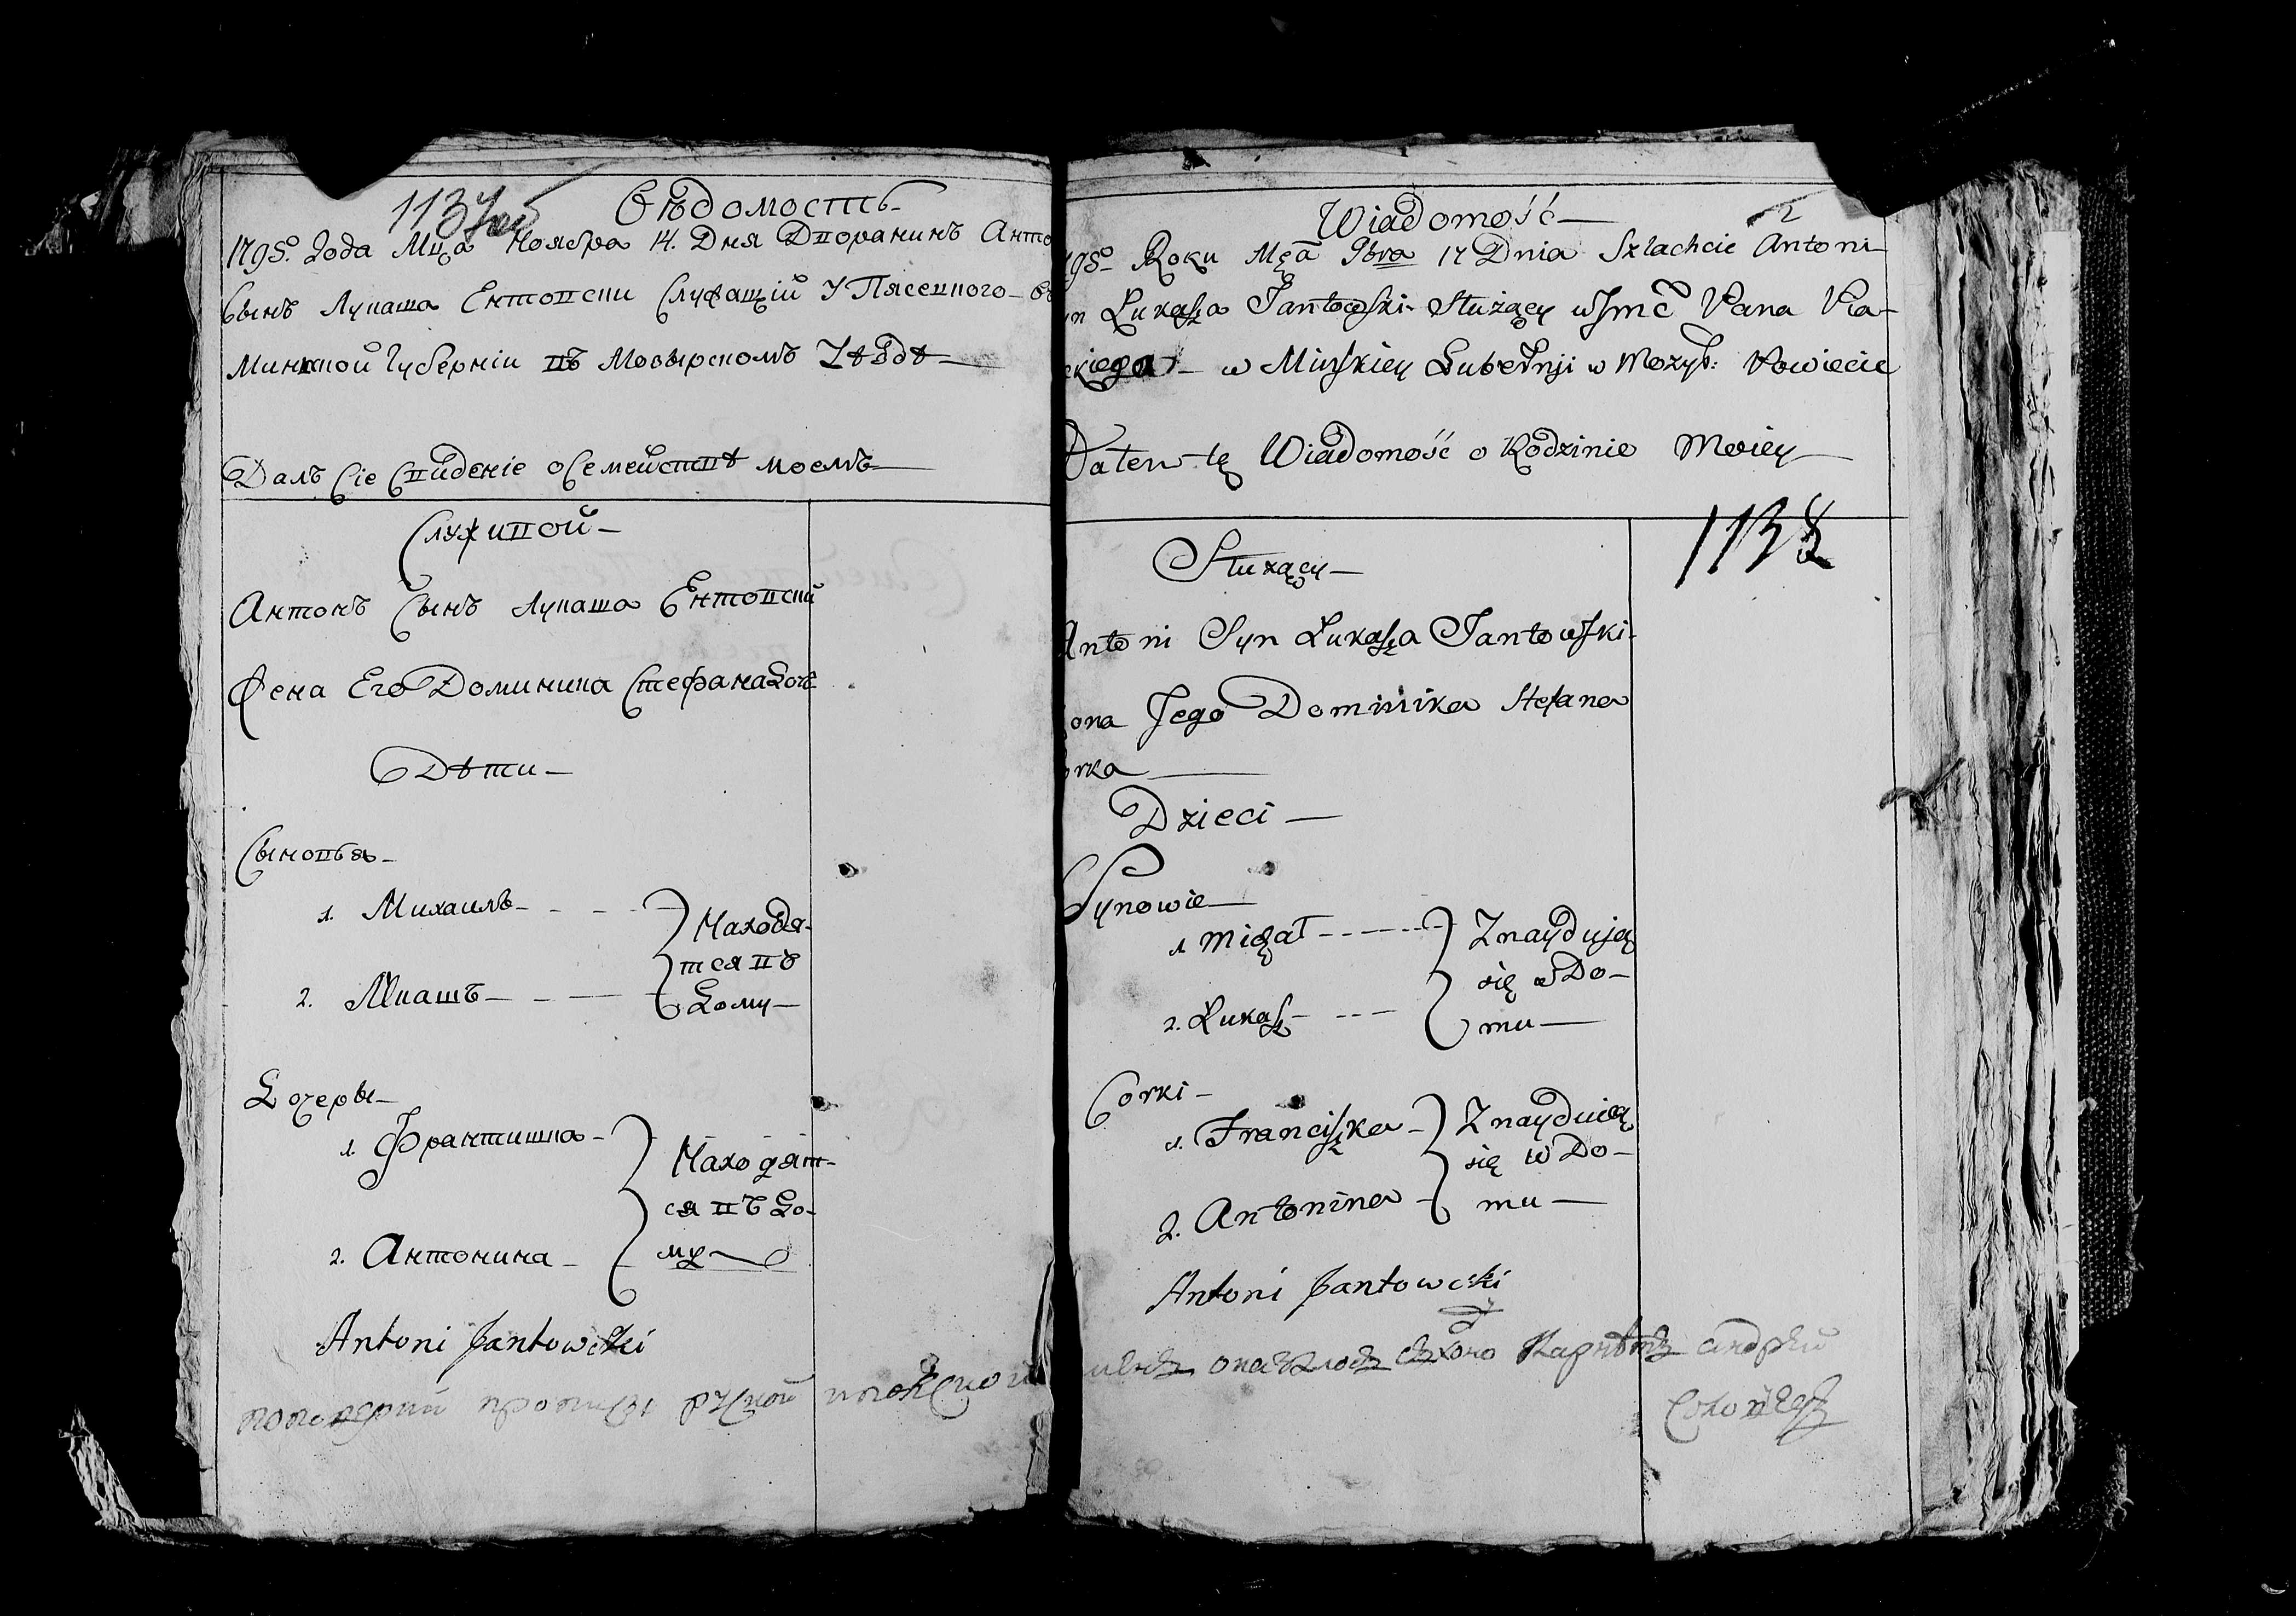 Вѣдомость
1795 года Мца Ноября 14. Дня Дворанинъ Анто
Сынъ Лукаша Ентовски Служащiй У Пясецкого
Минской Губернiи въ Мозырскомъ Уѣздѣ
Далъ Сiе Свиденiе о Семействѣ моемъ
Служивой
Антонъ Сынъ Лукаша Ентовский
Жена Его Доминика Стефана Доч
Дѣти
Сыновья
1. Михаилъ
Находя-
тся въ
Дому
2.
Дочеры
1. Франтишка
Находят-
ся въ До-
му
2. Антонина
Antoni Jantowski
1137
Wiadomość
2
Roku Mca 9bra 17 Dnia Szlachcic Antoni
Łukasza Jantowski Służący w Jmć Pana Pia-
w Minskiey Gubernji w Mozyr: Powiecie
Dałem tę Wiadomość o Rodzinie Moiey
1138
Służący
Antoni Syn Łukasza Jantowski
ona Jego Dominika Stefana
orka
Dzieci
Synowie
1. Michał
Znaydują
się w Do-
mu
2. Łukasz
Corki
1. Franciszka
Znayduią
się w Do-
mu
2. Antonina
Antoni Jantowski
андрей